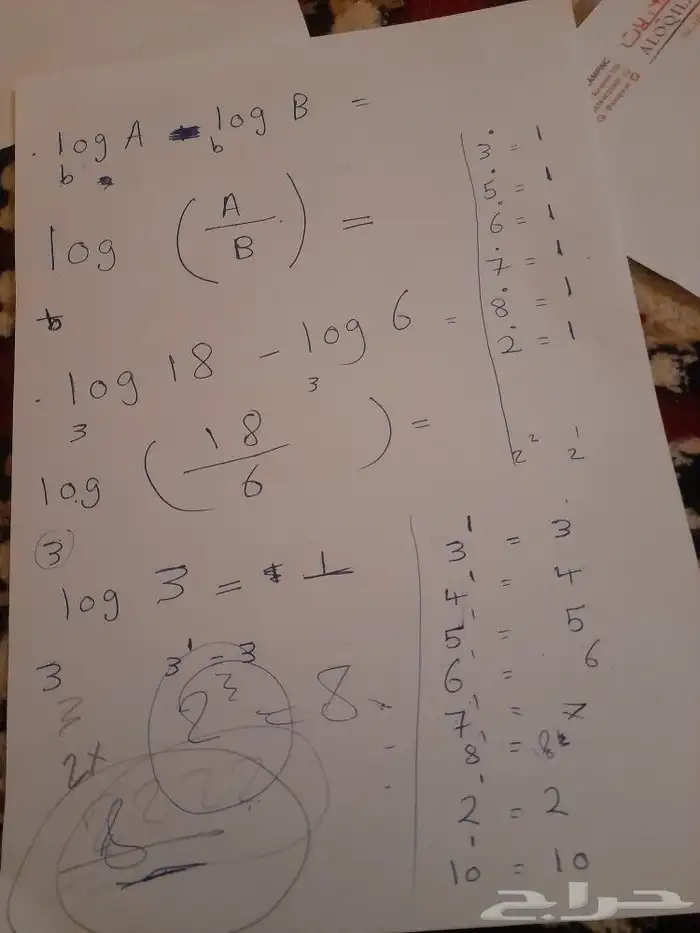 log_b A - log_b B =
log_b (A/B) =
log_3 18 - log_3 6 =
log_3 (18/6) =
log_3 3 = 1
3¹ = 3
2³ = 8
3
2x
8
3˙ = 1
5˙ = 1
6˙ = 1
7˙ = 1
8˙ = 1
2˙ = 1
2² 2¹
3¹ = 3
4¹ = 4
5¹ = 5
6¹ = 6
7¹ = 7
8¹ = 8
2¹ = 2
10¹ = 10
ALOQIL
حراج